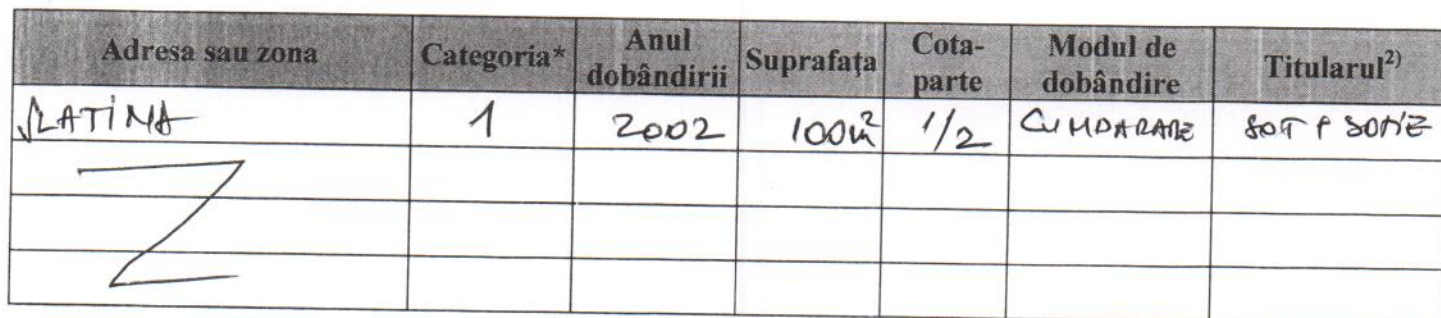 Adresa sau zona Categoria* Anul dobândirii Suprafaţa Cota-parte Modul de dobândire Titularul2)
SLATINA 1 2002 100m2 1/2 CUMPARARE SOT + SOTIE